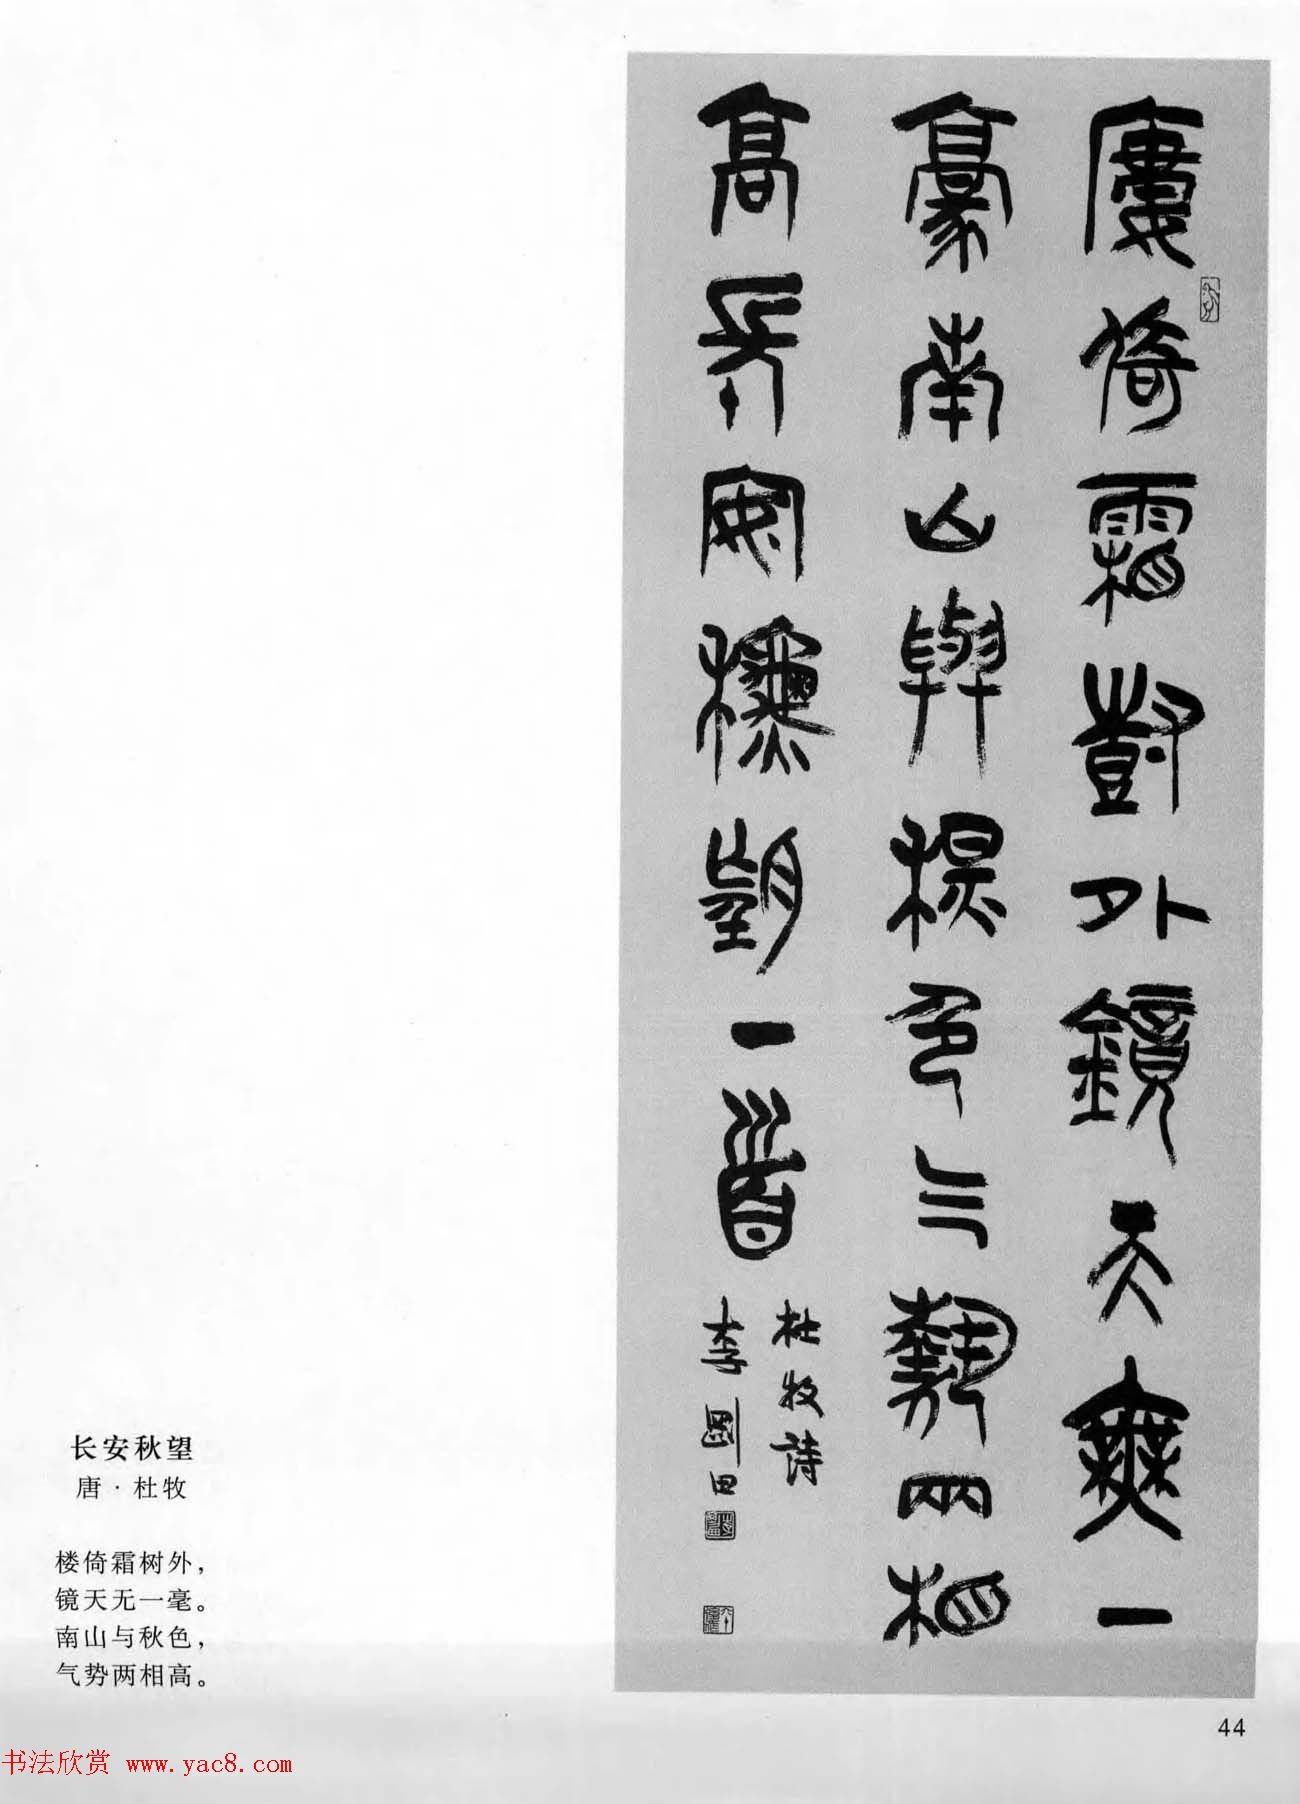 廔倚霜尌外鏡天無一
豪南山與秋色气勢兩相
高長安秋望一首
杜牧詩
李剛田
长安秋望
唐·杜牧
楼倚霜树外，
镜天无一毫。
南山与秋色，
气势两相高。
44
书法欣赏 www.yac8.com